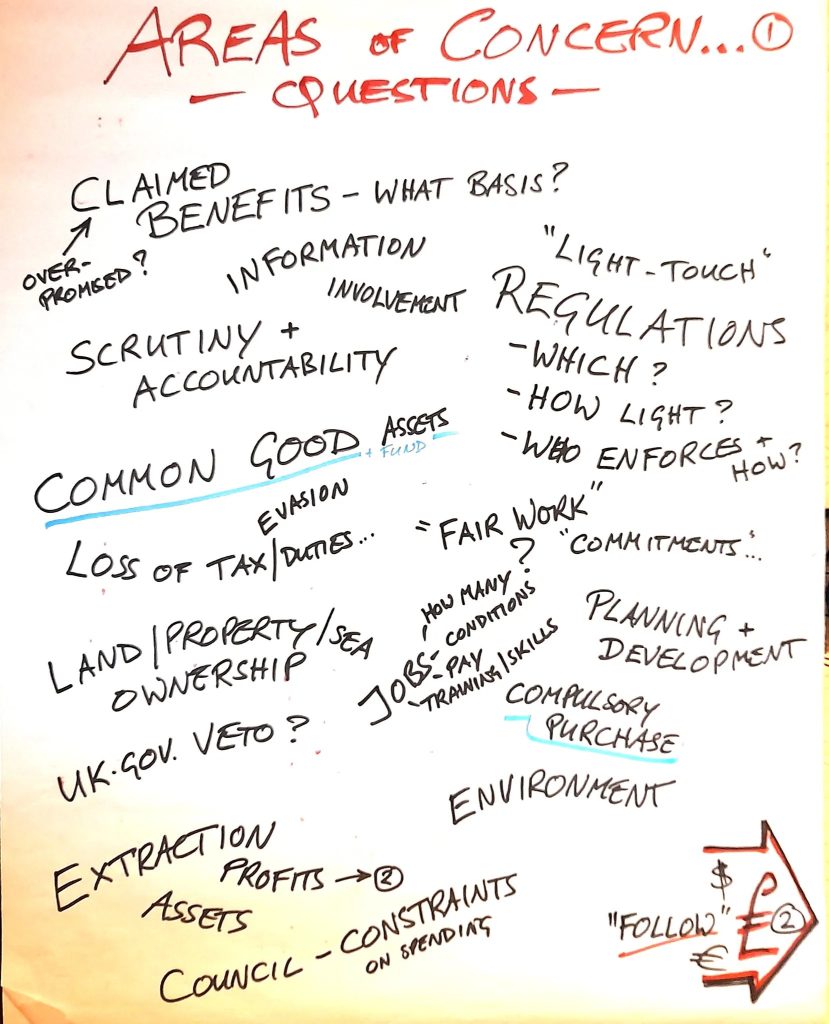 AREAS OF CONCERN... ①
— QUESTIONS —
CLAIMED
BENEFITS – WHAT BASIS?
OVER-
PROMISED?
INFORMATION
INVOLVEMENT
"LIGHT-TOUCH"
REGULATIONS
- WHICH?
- HOW LIGHT?
- WHO ENFORCES +
HOW?
SCRUTINY +
ACCOUNTABILITY
COMMON GOOD ASSETS
+ FUND
EVASION
LOSS OF TAX/DUTIES...
"FAIR WORK"
?
"COMMITMENTS"...
LAND/PROPERTY/SEA
OWNERSHIP
JOBS
- HOW MANY
- CONDITIONS
- PAY
- TRAINING/SKILLS
PLANNING +
DEVELOPMENT
COMPULSORY
PURCHASE
UK.GOV. VETO?
ENVIRONMENT
EXTRACTION
PROFITS → ②
ASSETS
COUNCIL – CONSTRAINTS
ON SPENDING
$
"FOLLOW" £ ②
€